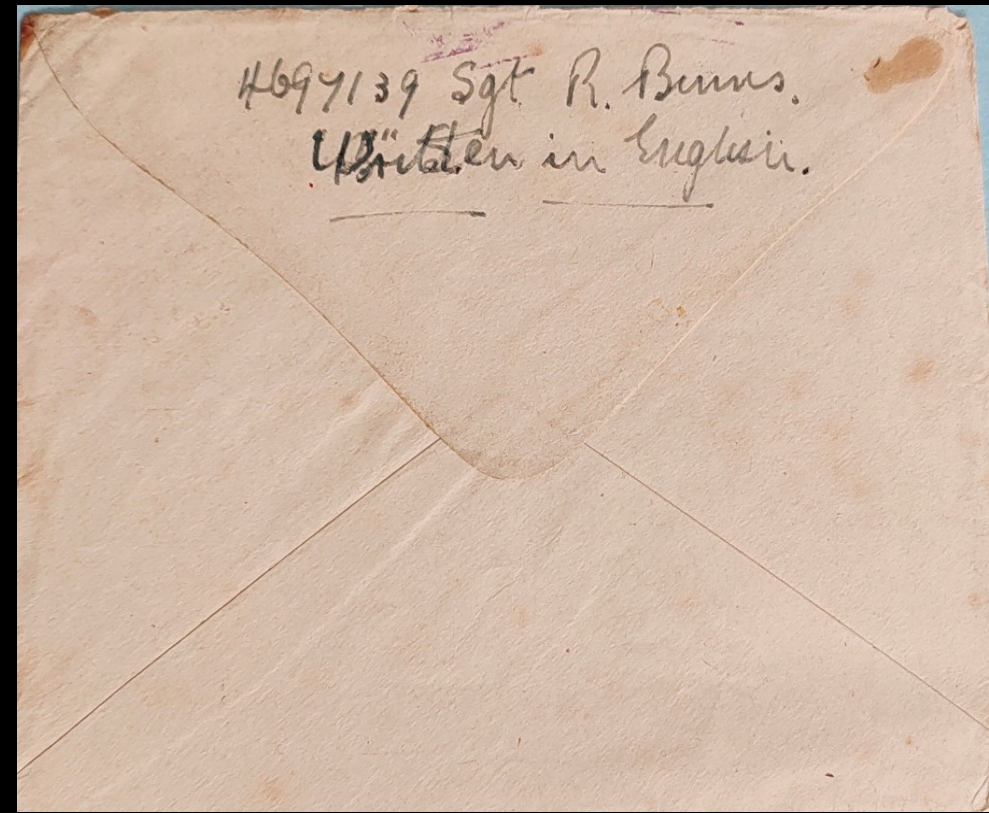 4697139 Sgt R. Binns.
Written in English.